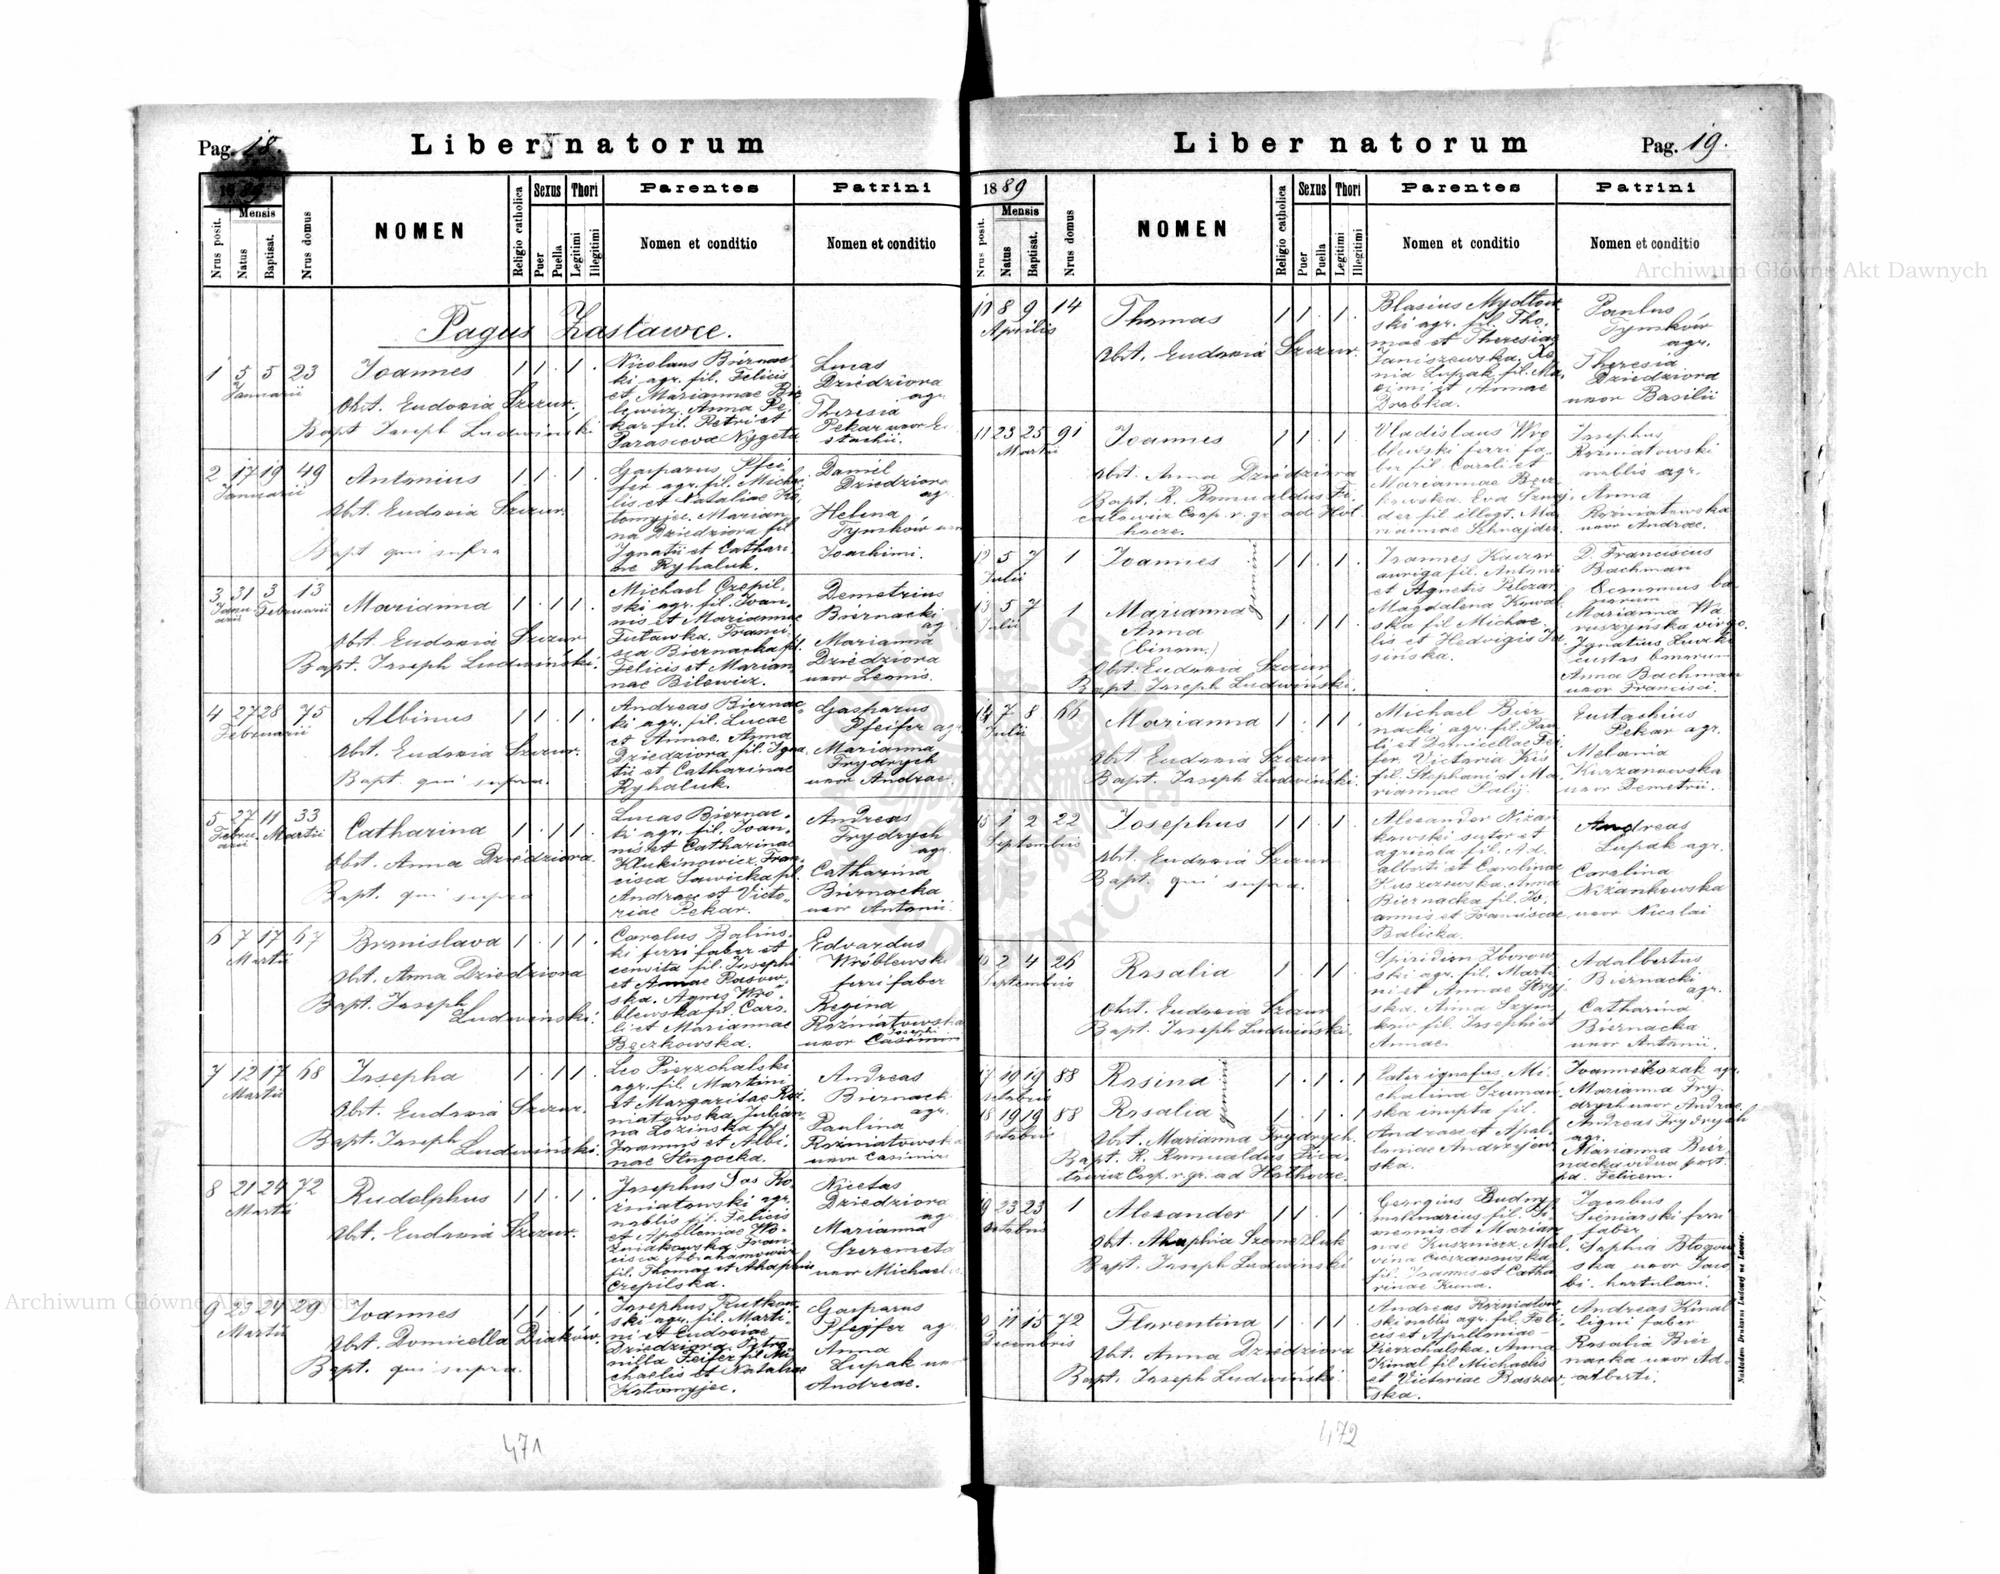 Pag. 18.
Liber natorum
1889
Mensis
Nrus posit.
Natus
Baptisat.
Nrus domus
NOMEN
Religio catholica
Sexus
Puer
Puella
Thori
Legitimi
Illegitimi
Parentes
Nomen et conditio
Patrini
Nomen et conditio
Pagus Zastawce.
1 5 5 23
Januarii
Joannes
Obst. Eudoxia Szczur.
Bapt Joseph Ludwiński
Nicolaus Biernac
ki agr. fil. Felicis
et Mariannae Bi
lewicz. Anna Pe
kar fil. Petri et
Parasceva Nygeta
Lucas
Dziedziora
agr.
Theresia
Pekar uxor Eu
stachii.
2 17 19 49
Januarii
Antonius
Obst. Eudoxia Szczur.
Bapt qui supra
Gasparus Pfei-
fer agr. fil. Micha
lis et Nataliae Ko
tomyjec. Marian
na Dziedziora fil
Ignatii et Cathari
nae Ryhaluk.
Daniel
Dziedziora
ag
Helena
Tymków uxor
Joachimi.
3 31 3 13
Janu-
arii Februarii
Marianna
Obst. Eudoxia Szczur
Bapt. Joseph Ludwiński.
Michael Czepil-
ski agr. fil. Joan-
nis et Mariannae
Tutawka. Franci
sca Biernacka fil.
Felicis et Marian-
nae Bilewicz.
Demetrius
Biernacki
ag
Marianna
Dziedziora
uxor Leonis.
4 27 28 75
Februarii
Albinus
Obst. Eudoxia Szczur.
Bapt. qui supra.
Andreas Biernac-
ki agr. fil. Lucae
et Annae. Anna
Dziedziora fil. Igna
tii et Catharinae
Ryhaluk.
Gasparus
Pfeifer agr
Marianna
Frydrych
uxor Andreae
5 27 11 33
Febru-
arii Martii
Catharina
Obst. Anna Dziedziora.
Bapt. qui supra
Lucas Biernac-
ki agr. fil. Joan-
nis et Catharinae
Klukinowicz. Fran-
cisca Sawicka fil.
Andreae et Victo-
riae Pekar.
Andreas
Frydrych
agr.
Catharina
Biernacka
uxor Antonii
6 7 17 67
Martii
Bronislava
Obst. Anna Dziedziora
Bapt. Joseph
Ludwiński.
Carolus Balins-
ki ferri faber et
fil. Josephi
et Annae
ska. Agnes Wro-
blewska fil. Caro-
li et Mariannae
Bęczkowska.
Edvardus
Wróblewski
ferri faber
Regina
Rozmiatowska
Josephi
uxor
7 12 17 68
Martii
Josepha
Obst. Eudoxia Szczur.
Bapt. Joseph
Ludwiński.
Leo Pierzchalski
agr. fil. Martini
et Margaritae Roz
matowska, Julian-
na Lozinska fil.
Joannis et Albi-
nae Slugocka.
Andreas
Biernack
agr.
Paulina
Rozmiatowska
uxor Casimiri
8 21 24 72
Martii
Rudolphus
Obst. Eudoxia Szczur.
Josephus Sas Ro-
zmiatowski agr.
nobilis fil. Felicis
et Apolloniae Wo-
zniakowska. Fran-
cisca Abrahamowicz
fil. Thomae et Ahaphiae
Czepilska.
Nicetas
Dziedziora
ag
Marianna
Szeremeta
uxor Michaelis
9 23 24 29
Martii
Joannes
Obst. Domicella Diaków.
Bapt. qui supra.
Josephus Rutkow-
ski agr. fil. Marti-
ni et Eudoxiae
Dziedziora. Petro
nilla Feifer fil. Mi
chaelis et Nataliae
Kotomyjec.
Gasparus
Pfeifer ag
Anna
Lupak uxor
Andreae.
471
Liber natorum
Pag. 19.
1889
Mensis
Nrus posit.
Natus
Baptisat.
Nrus domus
NOMEN
Religio catholica
Sexus
Puer
Puella
Thori
Legitimi
Illegitimi
Parentes
Nomen et conditio
Patrini
Nomen et conditio
10 8 9 14
Aprilis
Thomas
Obst. Eudoxia Szczur.
Blasius Mydtow
ski agr. fil. Tho-
mae et Theresiae
Janiszewska. Xe
nia Lupak fil. Ma
ximi et Annae
Drabka.
Paulus
Tymków
agr.
Theresia
Dziedziora
uxor Basilii
11 23 25 91
Martii
Joannes
Obst. Anna Dziedziora
Bapt. R. Romualdus Fi-
calowicz Coop. r. gr. ad Hol
hocze.
Vladislaus Wro
blewski ferri fa-
ber fil. Caroli et
Mariannae Bęcz
kowska. Eva Sznaj-
der fil. illegt. Ma
riannae Schnajder.
Josephus
Rozmiatowski
nobilis agr.
Anna
Rozmiatowska
uxor Andreae.
12 5 7 1
Julii
Joannes
gemini
13 5 7 1
Julii
Marianna
Anna
(binom.)
Obst. Eudoxia Szczur
Bapt Joseph Ludwiński.
Joannes
auriga fil. Antonii
et Agnetis
Magdalena Kowal
ska fil Michae-
lis et Hedvigis Ja
sińska.
D. Franciscus
Bachman
Oeconomus bo-
norum
Marianna Wa-
ruszyńska virgo.
Ignatius
custos bonorum
Anna Bachman
uxor Francisci.
14 7 8 66
Julii
Marianna
Obst Eudoxia Szczur
Bapt. Joseph Ludwiński.
Michael Bier
nacki agr. fil. Pau-
li et Domicellae Fei-
fer, Victoria Kris
fil. Stephani et Ma
riannae Palij.
Eustachius
Pekar agr.
Melania
Kurzanowska
uxor Demetrii.
15 1 2 22
Septembris
Josephus
Obst. Eudoxia Szczur
Bapt. qui supra.
Alexander Nizan
kowski sutor et
agricola fil. Ad-
alberti et Carolinae
Kuszczewska. Anna
Biernacka fil. Jo-
annis et Franciscae
Balicka.
Andreas
Lupak agr.
Carolina
Nizankowska
uxor Nicolai
16 2 4 26
Septembris
Rosalia
Obst. Eudoxia Szczur
Bapt. Joseph Ludwiński.
Spiridion Zborow
ski agr. fil. Marti
ni et Annae Stryj-
ska. Anna Szym
kow fil. Josephi et
Annae.
Adalbertus
Biernacki
agr.
Catharina
Biernacka
uxor Antonii.
17 19 19 88
Octobris
Rosina
gemini
18 19 19 88
Octobris
Rosalia
Obst. Marianna Frydrych.
Bapt. R. Romualdus Fica-
lowicz Coop. r. gr. ad Holhocze.
Pater ignotus. Mi-
chalina Szuman-
ska inupta fil.
Andreae et Apol-
loniae Andrzejow-
ska.
Joannes Kozak agr.
Marianna Fry-
drych uxor Andreae
Andreas Frydrych
agr.
Marianna Bier-
nacka vidua post
pd. Felicem.
19 23 23 1
Octobris
Alexander
Obst. Ahaphia Szemezluk
Bapt. Joseph Ludwiński
Georgius Budny
molinarius fil. Si-
meonis et Marian
nae Kusznierz. Mal-
vina Cieszanowska
fil. Joannis et Catha
rinae Kuna.
Jacobus
Sieniarski ferri
faber
Sophia Błogow
ska uxor Jaco
bi hortulani.
20 11 15 72
Decembris
Florentina
Obst. Anna Dziedziora
Bapt. Joseph Ludwiński
Andreas Rozmiatow
ski nobilis agr. fil. Feli-
cis et Apolloniae
Pierzchalska. Anna
Kinal fil Michaelis
et Victoriae Raszew
ska.
Andreas Kinal
ligni faber
Rosalia Bier
nacka uxor Ad-
alberti.
Nakładem Drukarni Ludowej we Lwowie.
472
Archiwum Główne Akt Dawnych
Archiwum Główne Akt Dawnych